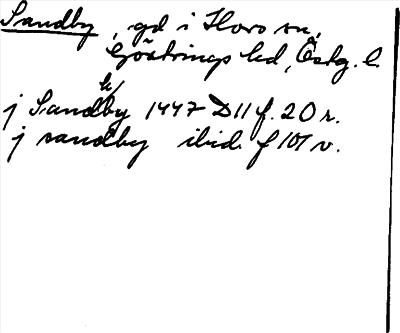 Sandby, gd i Hovs sn,
Göstrings hd, Östg. l.
j Sandby 1447 D11 f. 20 r.
j sandby ibid. f 101 v.